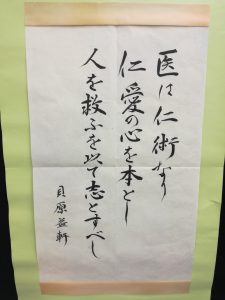 医は仁術なり
仁愛の心を本とし
人を救ふを以て志とすべし
貝原益軒